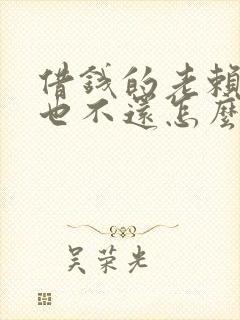 借錢的老賴
也不還怎麼
吴荣光